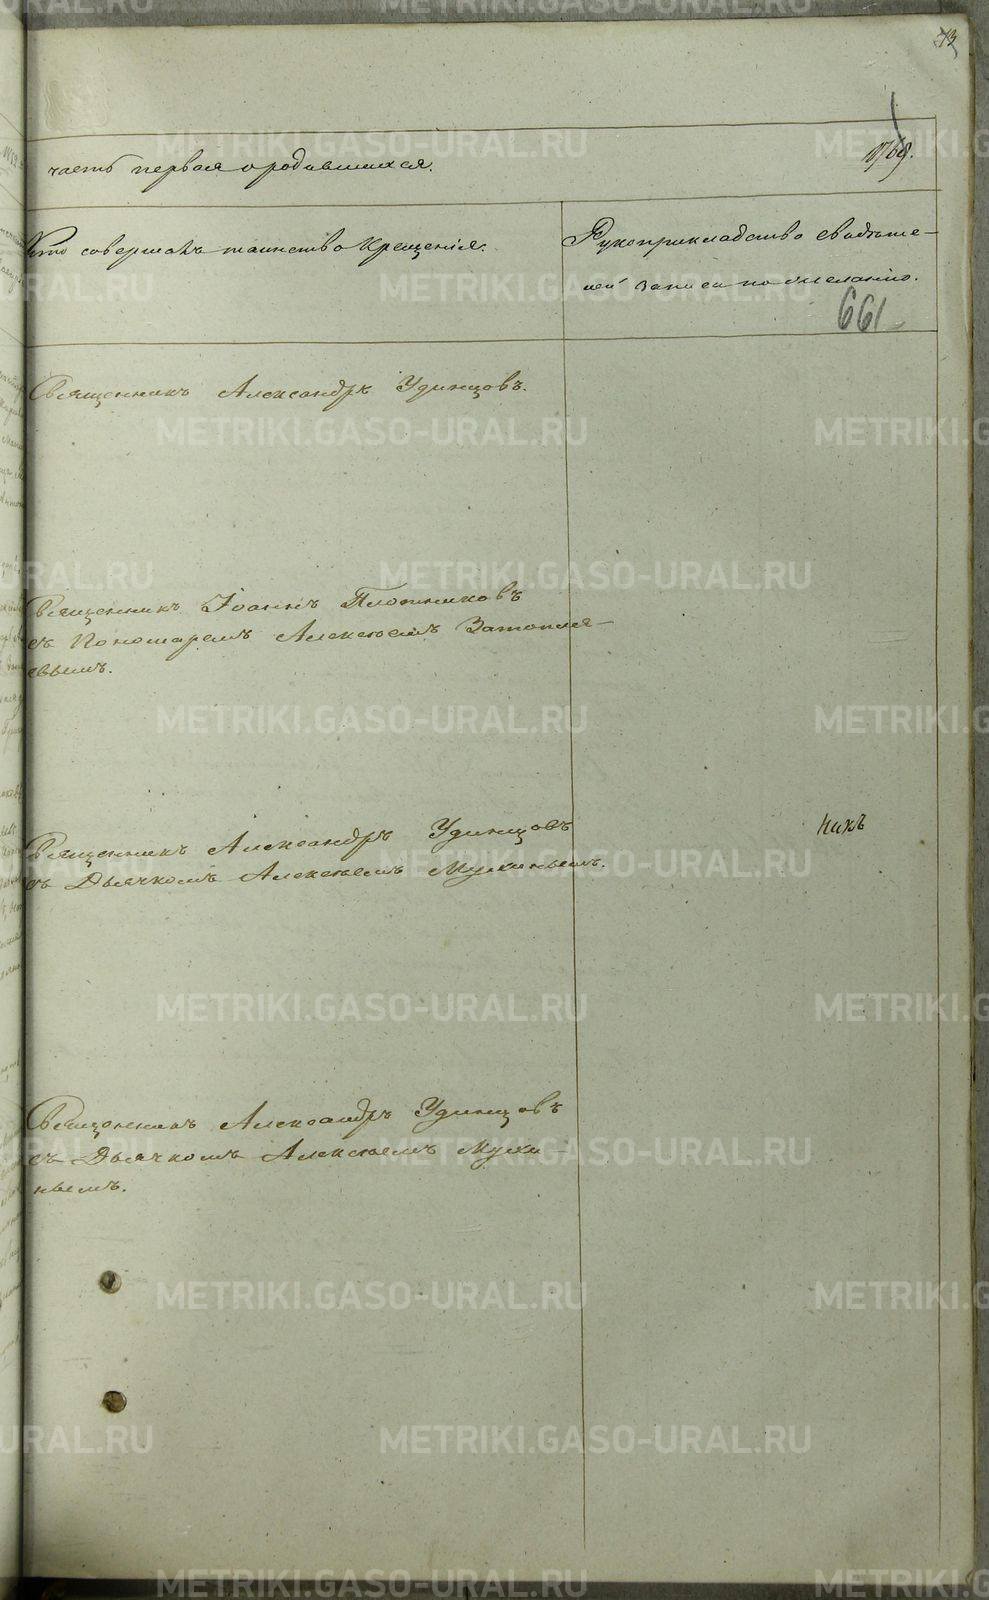 73
часть первая о родившихся.
Кто совершалъ таинство крещенія.
Рукоприкладство свидѣте-
лей записи по желанію.
661
Священникъ Александръ Удинцовъ.
Священникъ Іоаннъ Плотниковъ
съ Пономаремъ Алексѣемъ Затопля-
евымъ.
Священникъ Александръ Удинцовъ
съ Дьячкомъ Алексѣемъ
никъ
Священникъ Александръ Удинцовъ
съ Дьячкомъ Алексѣемъ
METRIKI.GASO-URAL.RU